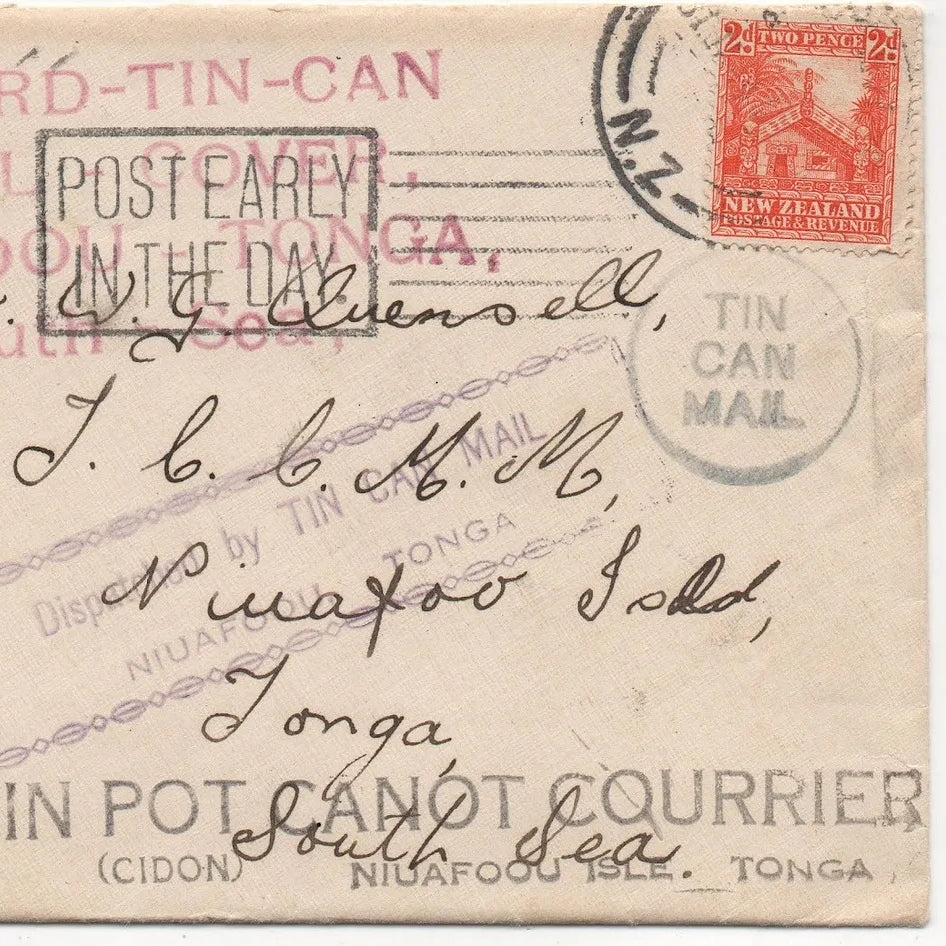 2d TWO PENCE 2d
NEW ZEALAND
POSTAGE & REVENUE
N.Z.
RD-TIN-CAN
L-COVER,
OOU - TONGA,
uth - Sea,
POST EARLY
IN THE DAY.
TIN
CAN
MAIL
. W. G. Quensell,
T. C. C. M. M,
Dispatched by TIN CAN MAIL
NIUAFOOU TONGA
Niuafoo Isld,
Tonga,
South Sea.
IN POT CANOT COURRIER
(CIDON) NIUAFOOU ISLE. TONGA,